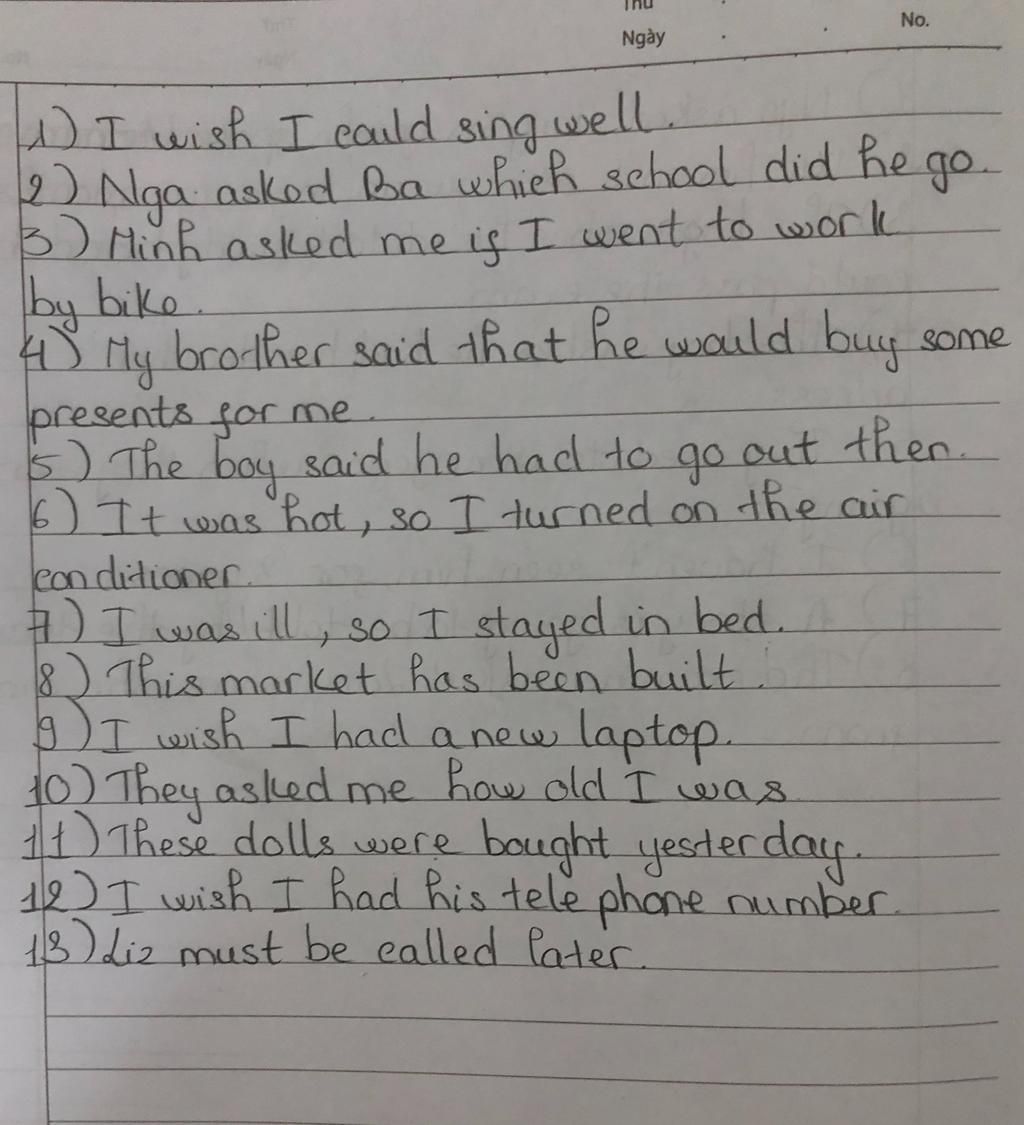 Thứ
Ngày . .
No.
1) I wish I could sing well.
2) Nga asked Ba which school did he go.
3) Minh asked me if I went to work
by bike.
4) My brother said that he would buy some
presents for me.
5) The boy said he had to go out then.
6) It was hot, so I turned on the air
conditioner.
7) I was ill, so I stayed in bed.
8) This market has been built.
9) I wish I had a new laptop.
10) They asked me how old I was
11) These dolls were bought yesterday.
12) I wish I had his telephone number.
13) Liz must be called later.